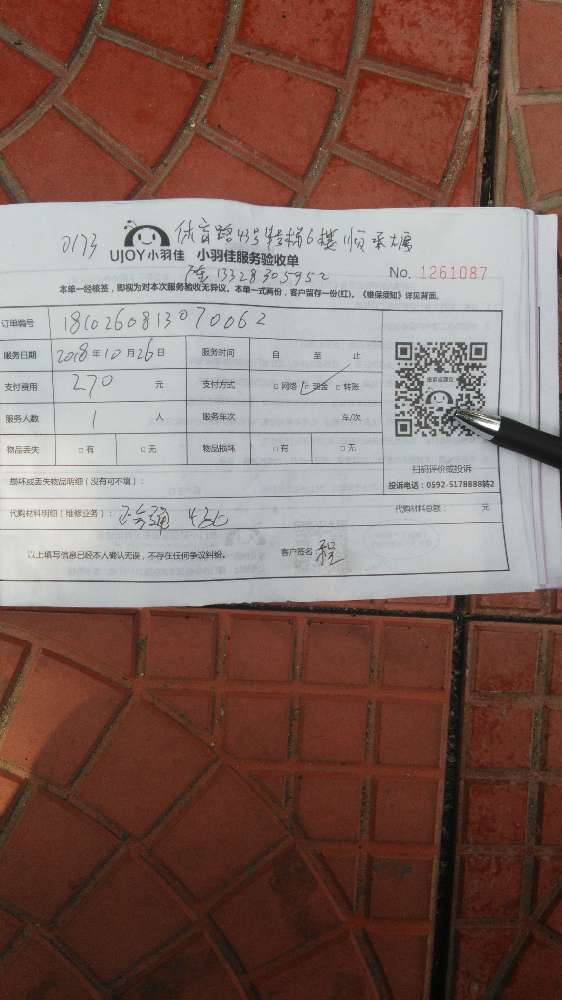 0173 体育路43号 6楼
UJOY小羽佳 小羽佳服务验收单
13328305952
No. 1261087
本单一经核签，即视为对本次服务验收无异议。本单一式两份，客户留存一份(红)。《维保须知》详见背面。
订单编号 181026081307 0062
服务日期 2018年10月26日 服务时间 自 至 止
支付费用 270 元 支付方式 □网络 □现金 □转账
服务人数 1 人 服务车次 车/次
物品丢失 □有 □无 物品损坏 □有 □无
扫码评价或投诉
投诉电话：0592-5178888转2
损坏或丢失物品明细（没有可不填）：
代购材料明细（维修业务）： 代购材料总额： 元
以上填写信息已经本人确认无误，不存在任何争议纠纷。 客户签名 程